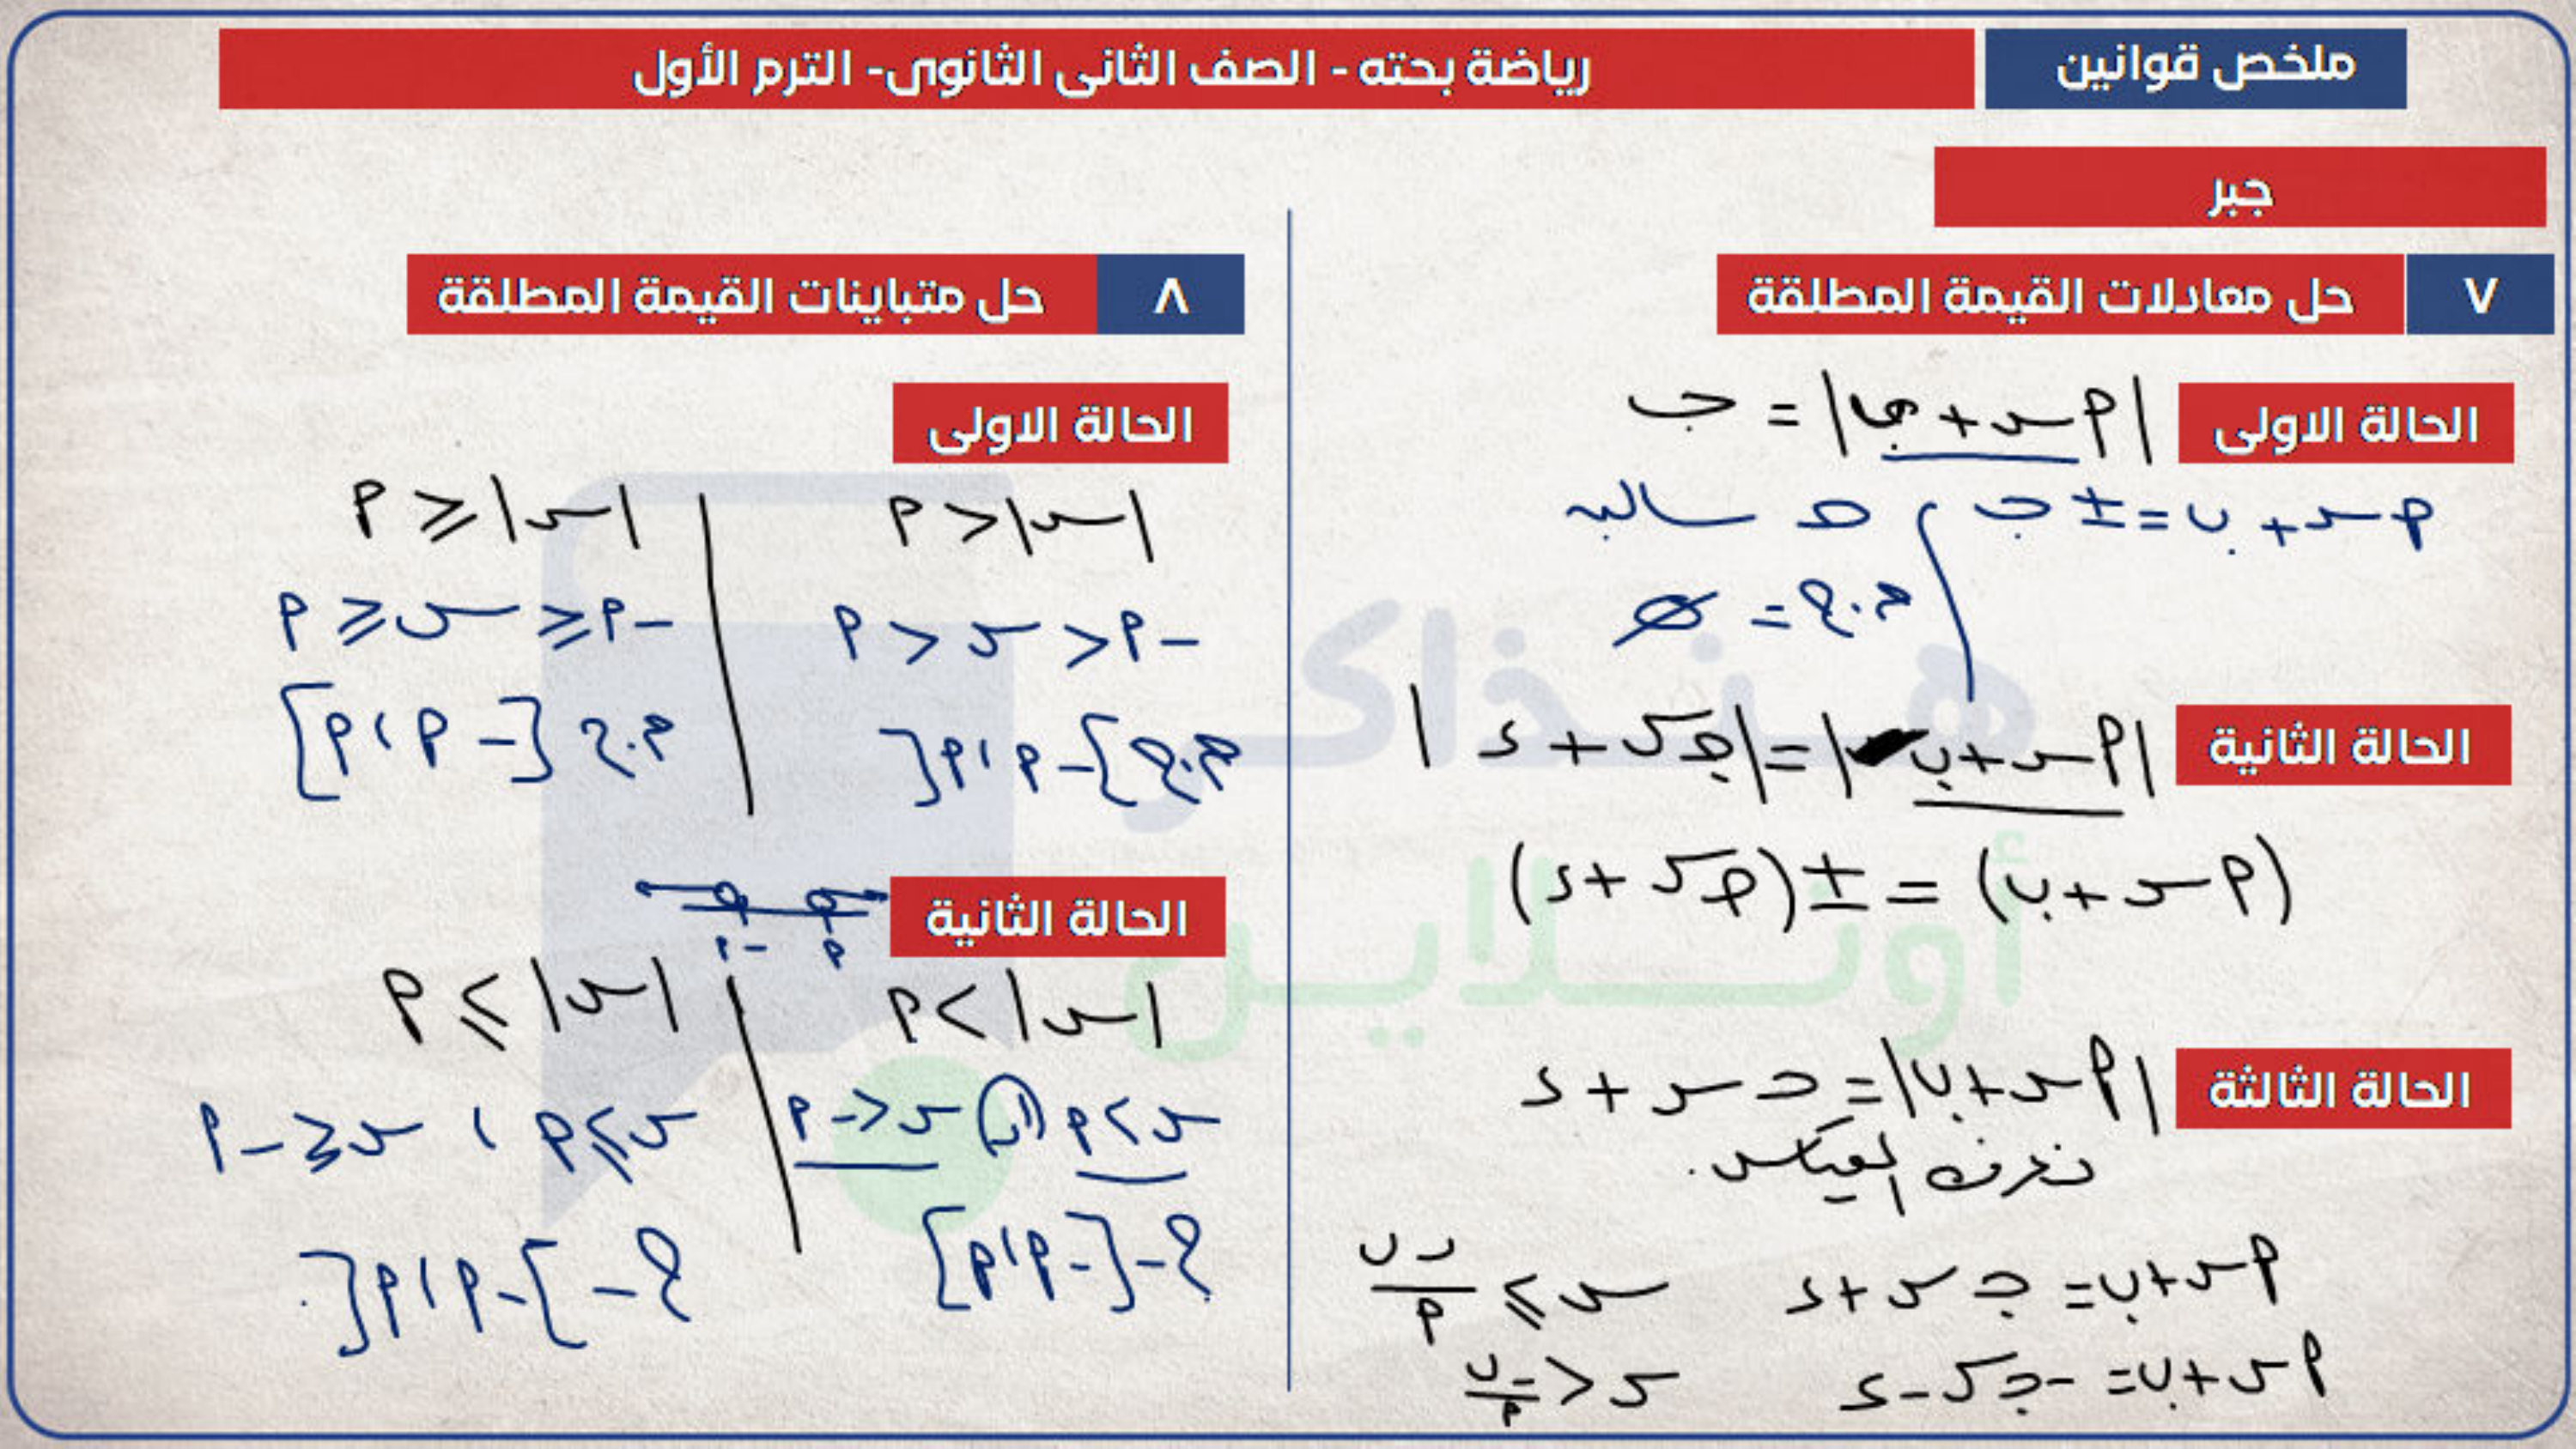 ملخص قوانين
رياضة بحته - الصف الثانى الثانوى- الترم الأول
جبر
٧ حل معادلات القيمة المطلقة
الحالة الاولى
|أس + ب| = جـ
أس + ب = ± جـ ، جـ سالبه
م.ح = ∅
الحالة الثانية
|أس + ب| = |جـ س + د|
(أس + ب) = ± (جـ س + د)
الحالة الثالثة
|أس + ب| = جـ س + د
نعرف المقياس.
أس + ب = جـ س + د
س ≥ -ب/أ
أس + ب = -جـ س - د
س < -ب/أ
٨ حل متباينات القيمة المطلقة
الحالة الاولى
|س| < أ
-أ < س < أ
م.ح ]-أ ، أ[
|س| ≤ أ
-أ ≤ س ≤ أ
م.ح [-أ ، أ]
الحالة الثانية
-أ أ
|س| > أ
س > أ أو س < -أ
ح - [-أ ، أ]
|س| ≥ أ
س ≥ أ ، س ≤ -أ
ح - ]-أ ، أ[
هنذاكر
أونلاين